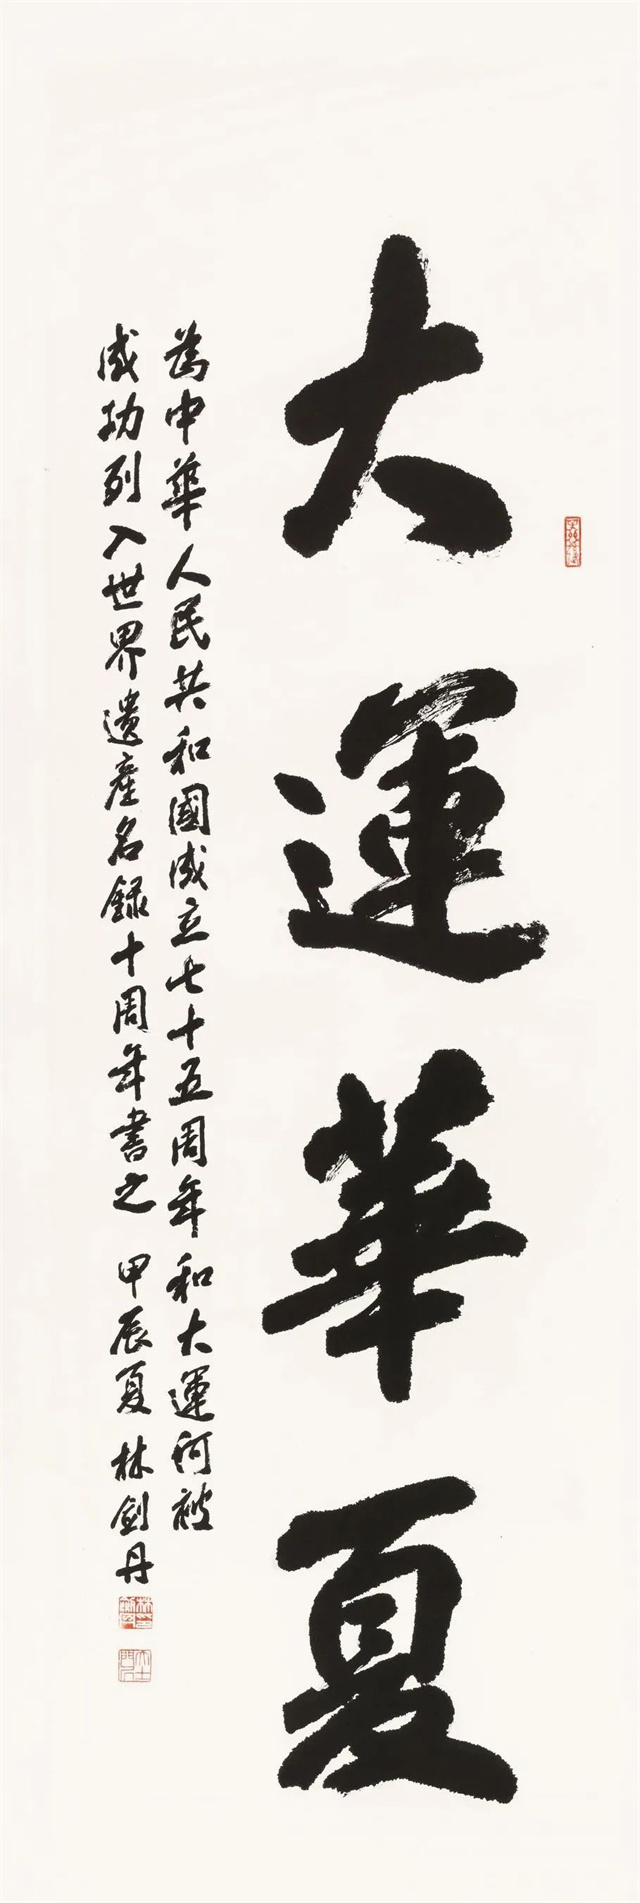 大運華夏
為中華人民共和國成立七十五周年和大運河被
成功列入世界遺產名録十周年書之 甲辰夏 林劍丹